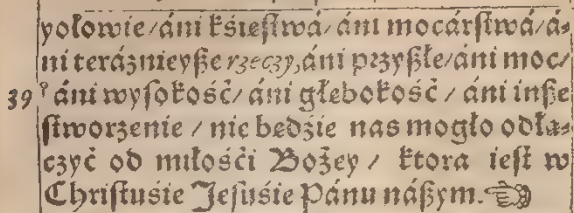 yołowie/áni kśiestwá/áni mocárstwá/á-
ni teráznieyße rzeczy,áni przyßłe/áni moc/
39 ? áni wysokość/áni głebokość/áni inße
stworzenie/nic bedzie nas mogło odłą-
czyć od miłośći Bożey/ktora iest w
Christuśie Jesuśie Pánu náßym.☜